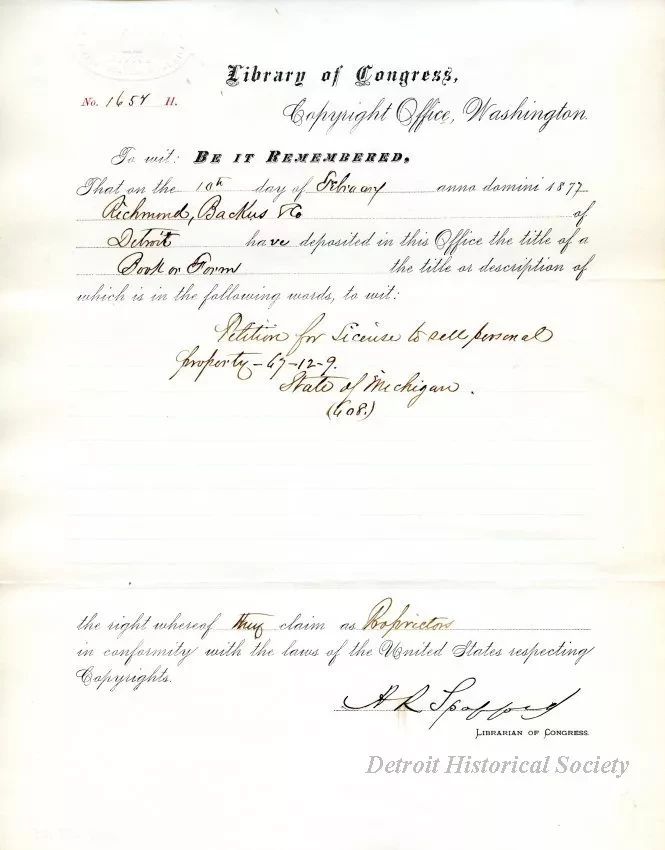 Library of Congress,
No. 1654 H.
Copyright Office, Washington.
To wit: BE IT REMEMBERED,
That on the 10th day of February anno domini 1877
Richmond, Backus & Co of
Detroit have deposited in this Office the title of a
Book or Form the title or description of
which is in the following words, to wit:
Petition for License to sell personal
property – 67-12-9.
State of Michigan.
(608.)
the right whereof they claim as Proprietors
in conformity with the laws of the United States respecting
Copyrights.
A R Spofford
LIBRARIAN OF CONGRESS.
Detroit Historical Society